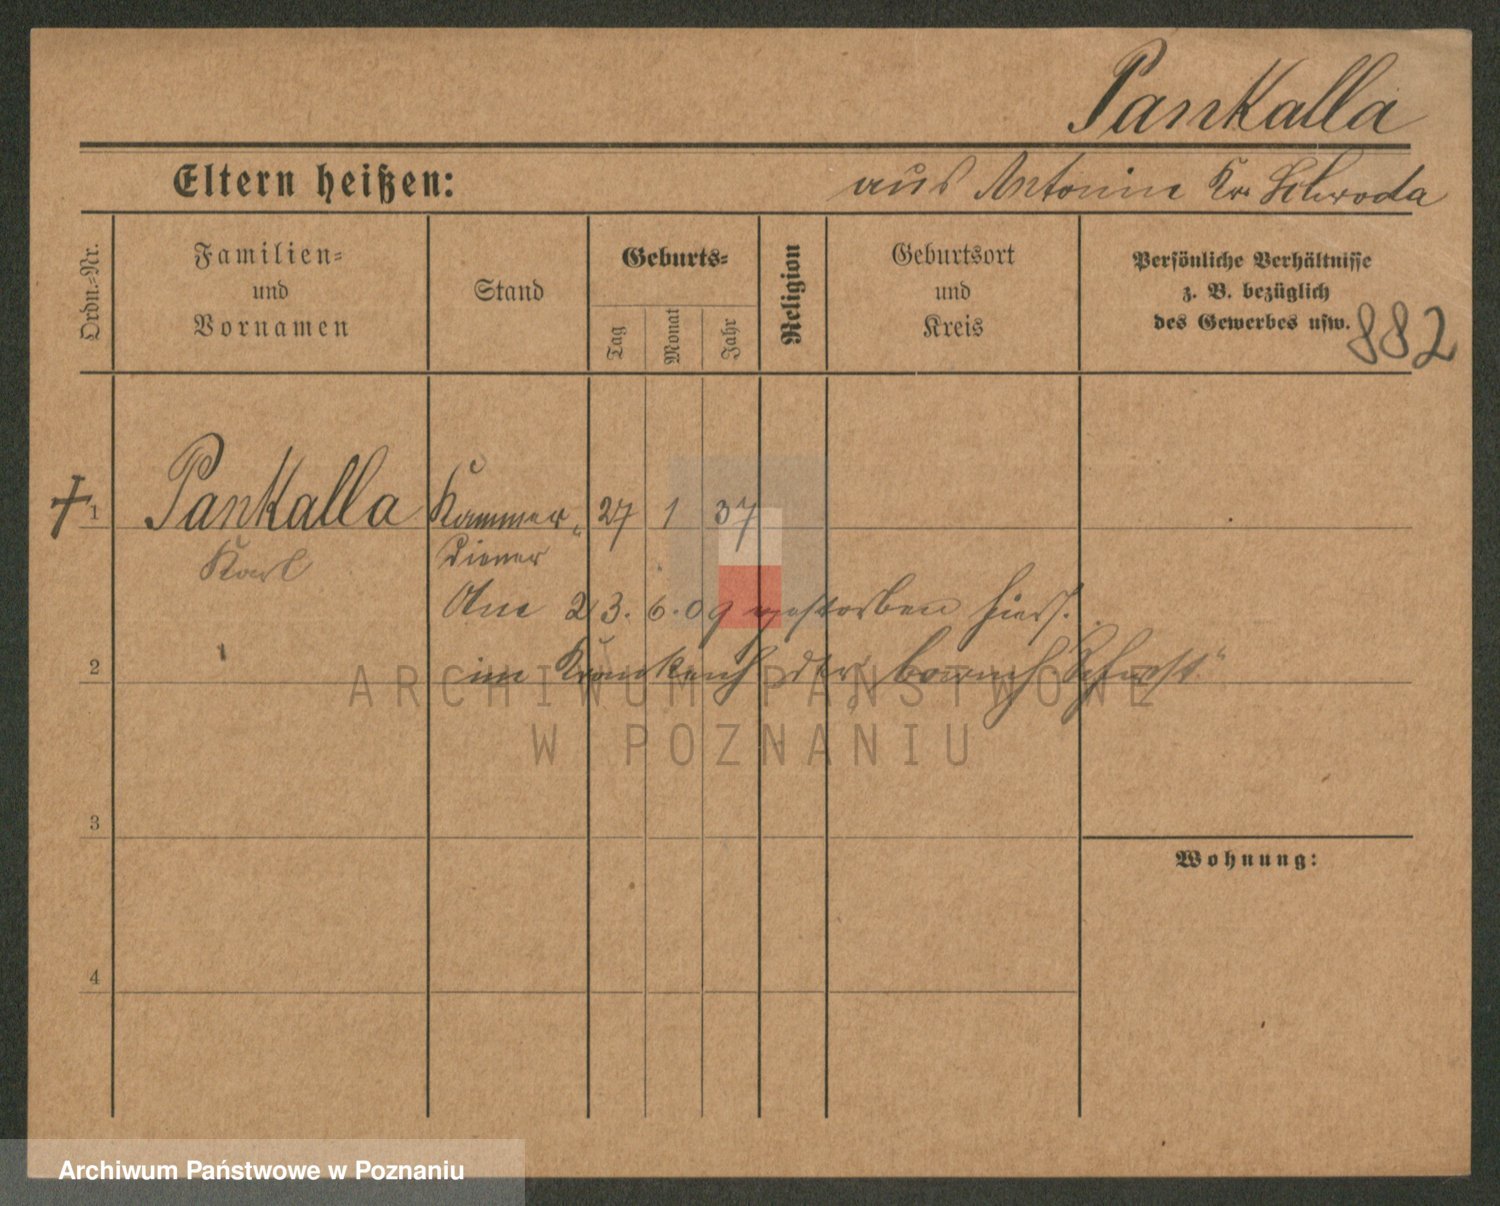 Pankalla
Eltern heißen:
aus Antonin Kr. Schroda
Ordn.-Nr.
Familien-
und
Vornamen
Stand
Geburts-
Tag
Monat
Jahr
Religion
Geburtsort
und
Kreis
Persönliche Verhältnisse
z. B. bezüglich
des Gewerbes usw.
882
† 1 Pankalla Kammer- 27 1 37
Karl Diener
Am 23. 6. 09 gestorben hies.
2 im Krankenh. der barmh. Schwest.
3
Wohnung:
4
ARCHIWUM PAŃSTWOWE
W POZNANIU
Archiwum Państwowe w Poznaniu